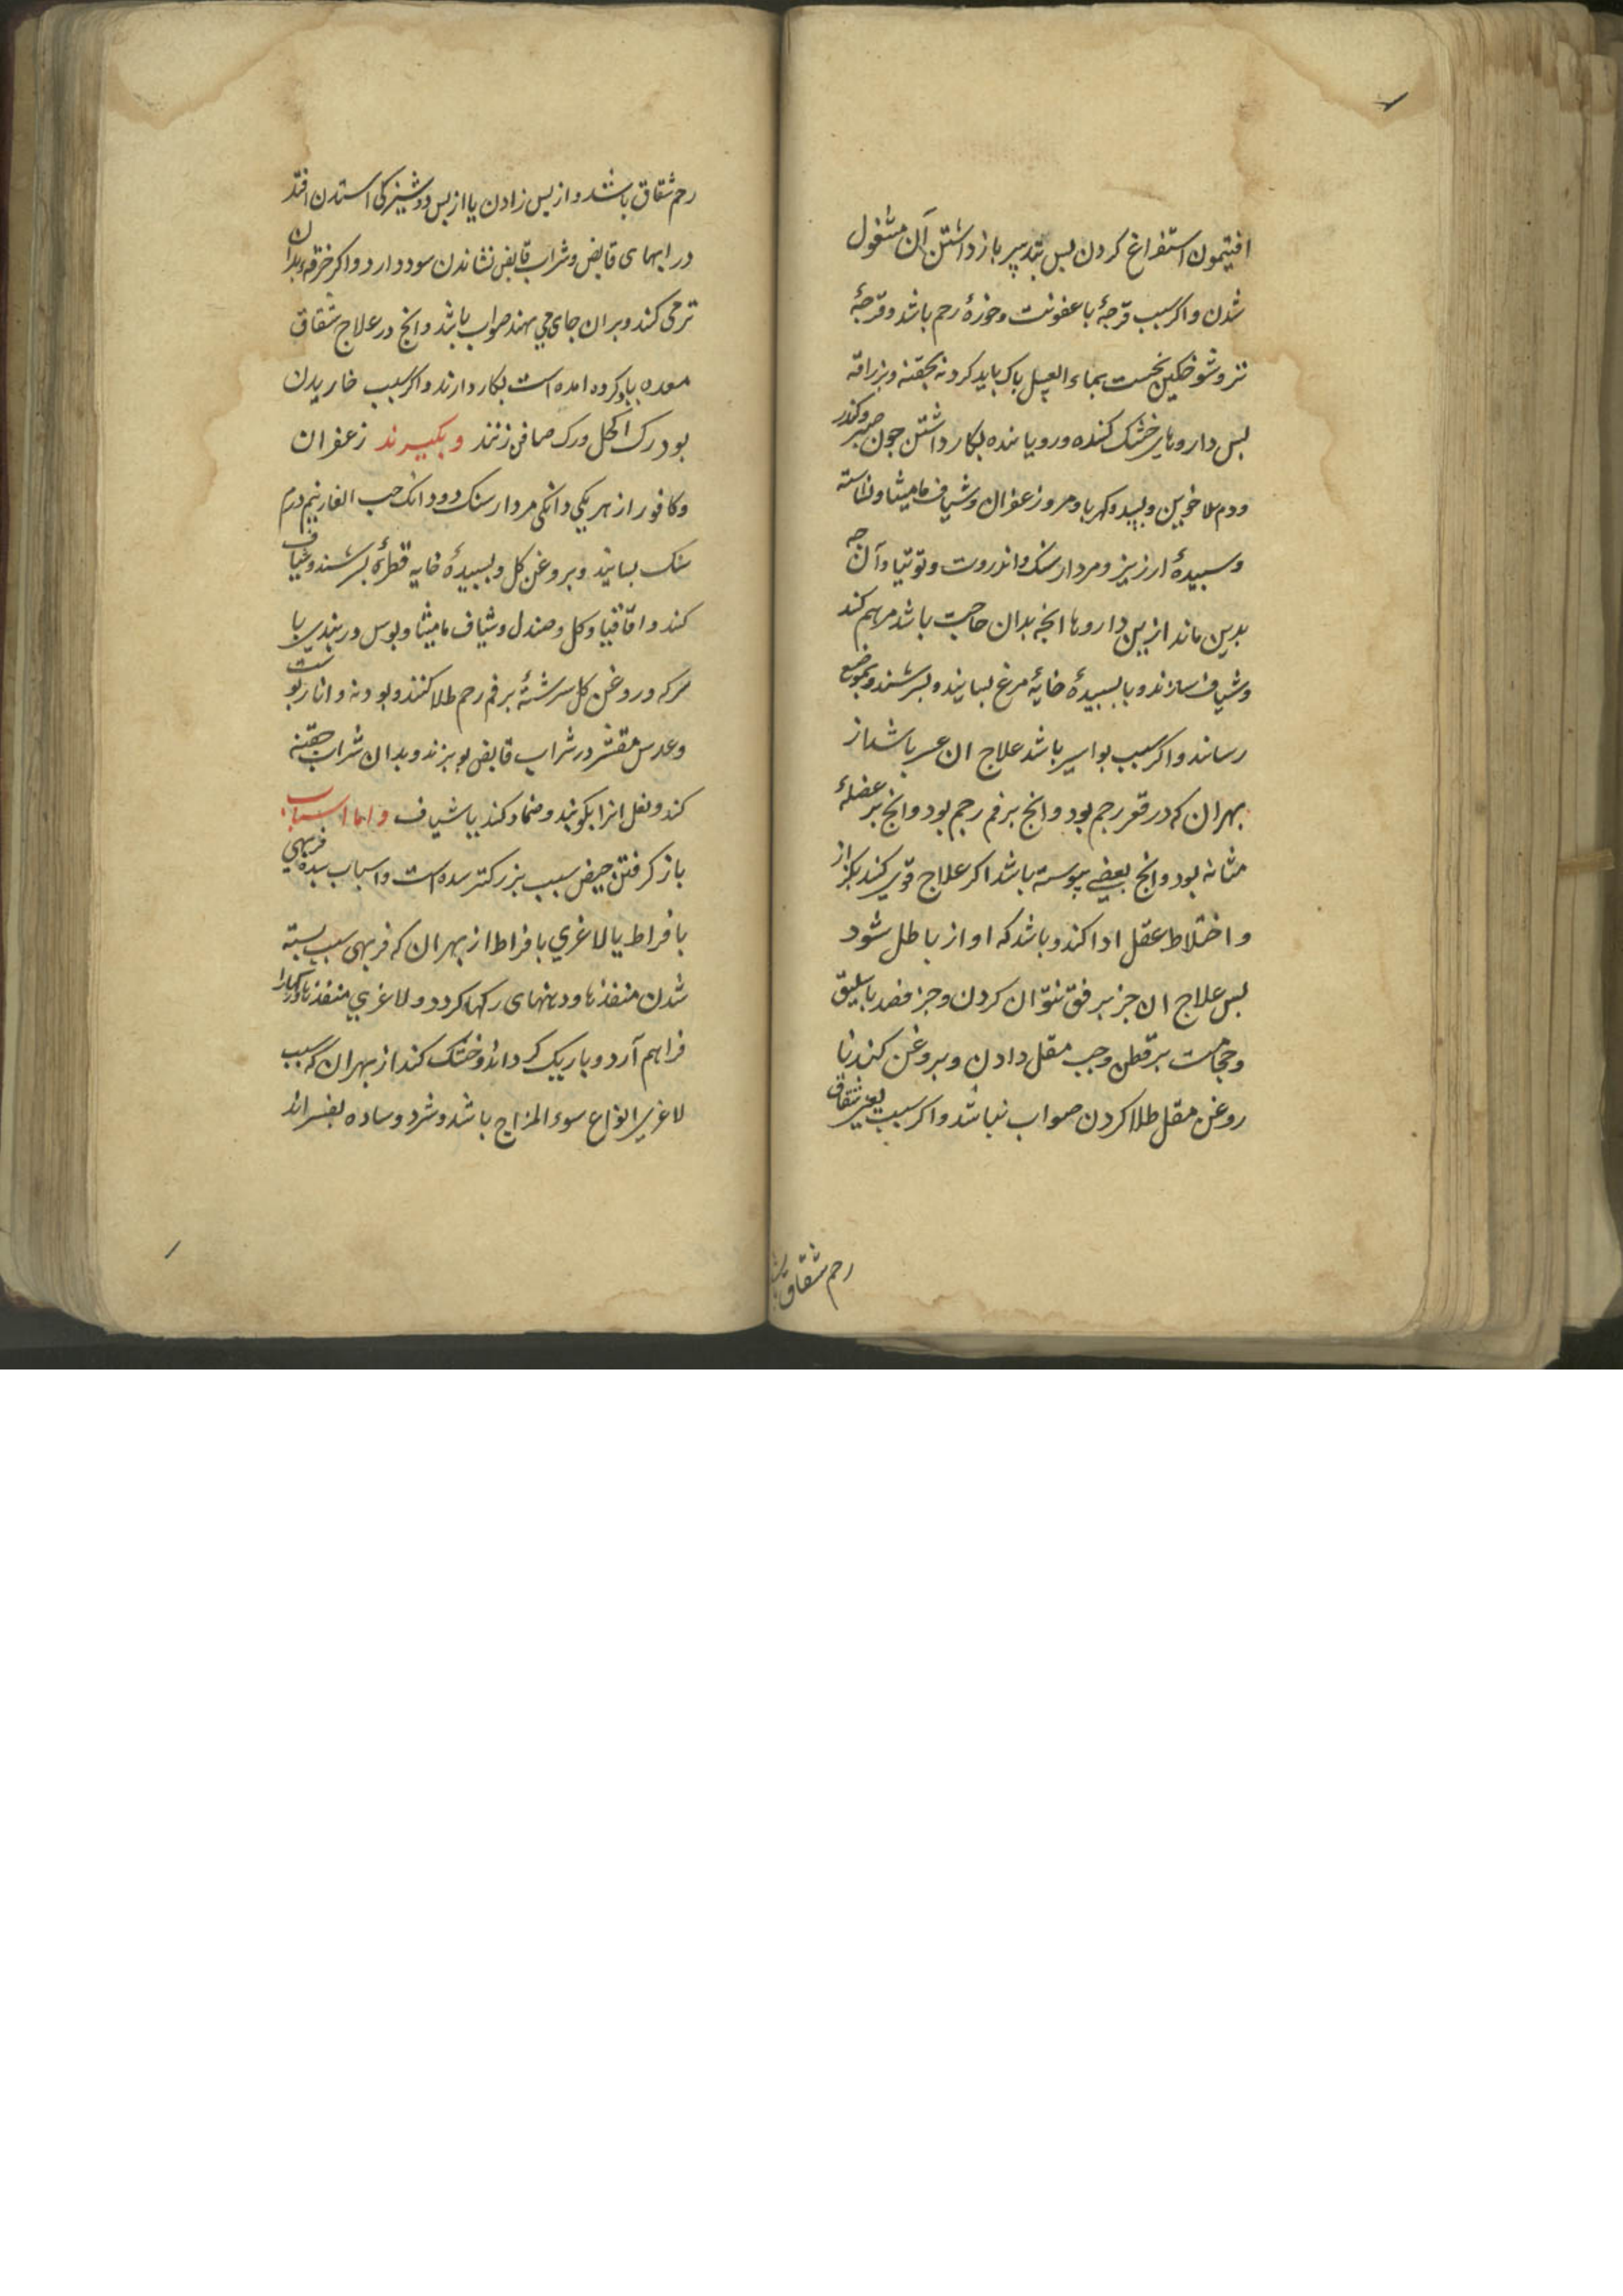 افتیمون استفراغ کردن بس بتدبیر بازداشتن آن مشغول
شدن و اکر سبب قرحهٔ با عفونت و خورهٔ رحم باشد و قرحهٔ
تر و شوخکین نخست بماء العسل باک باید کرد نه بحقنه و بزراقه
بس داروهای خشک کننده و رویاننده بکار داشتن جون صبر و کندر
و دم الاخوین و بسد و کهربا و مر و زعفران و شیاف مامیثا و نشاسته
و سبیدهٔ ارزیز و مردارسنک و انزروت و توتیا و آن جه
بدین ماند از بین داروها انجه بدان حاجت باشد مرهم کند
و شیاف سازند و با سبیدهٔ خایهٔ مرغ بسایند و بسرشند و بموضع
رساند و اکر سبب بواسیر باشد علاج ان عسر باشد از
بهر ان که در قعر رحم بود و انج بر فم رحم بود و انج بر عضلهٔ
مثانه بود و انج بعضی بیوسته باشد اکر علاج قوی کند بکزاز
و اختلاط عقل ادا کند و باشد که اواز باطل شود
بس علاج ان جز برفق نتوان کردن و جز فصد باسلیق
و حجامت بر قطن و حب مقل دادن و بروغن کندنا
روغن مقل طلا کردن صواب نباشد و اکر سبب شقاق
رحم شقاق
رحم شقاق باشد و از بس زادن یا از بس دوشیزکی استدن افتد
در ابهای قابض و شراب قابض نشاندن سود دارد و اکر خرقه بدان
تر می کند و بران جای می نهند صواب باشد و انج در علاج شقاق
معده یاد کرده امده است بکار دارند و اکر سبب خاریدن
بود رک اکحل و رک صافن زنند و بکیرند زعفران
و کافور از هر یکی دانکی مردارسنک دو دانک حب الغار نیم درم
سنک بسایند و بروغن کل و بسبیدهٔ خایه قطرهٔ بسرشند و شیاف
کند و اقاقیا و کل و صندل و شیاف مامیثا و بوس دربندی با
سرکه و روغن کل سرشتهٔ بر فم رحم طلا کنند و بودنه و انار بوست
و عدس مقشر در شراب قابض بو بزند و بدان شراب حقنه
کند و ثفل انرا بکوبند و ضماد کند یا شیاف و اما اسباب
باز کرفتن حیض سبب بزرکتر سده است و اسباب سده فربهی
بافراط یا لاغری بافراط از بهر ان که فربهی سبب بسته
شدن منفذها و دهنهای رکها کردد و لاغری منفذها و رکها را
فراهم آرد و باریک کرداند و خشک کند از بهر ان که سبب
لاغری انواع سوء المزاج باشد و سرد و ساده بفسراند